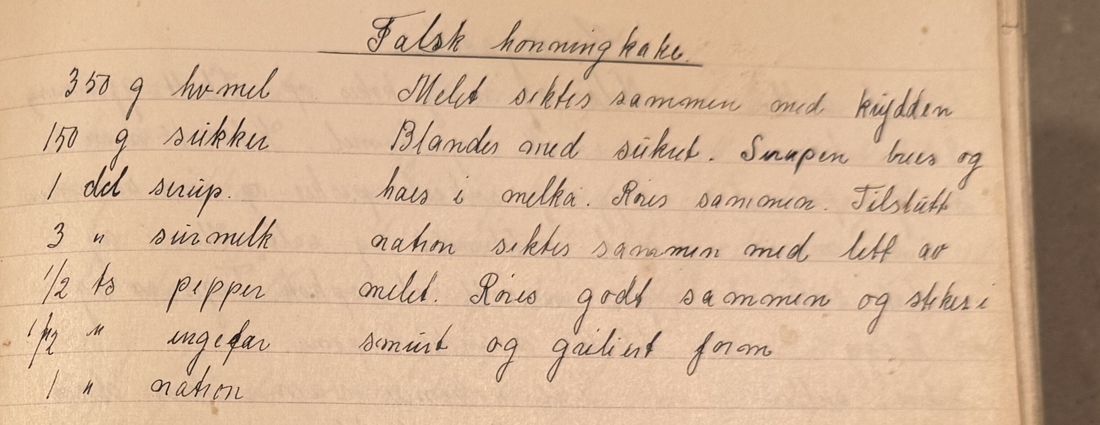 Falsk honningkake.
350 g hvmel
150 g sukker
1 del serup.
3 " surmelk
1/2 ts pepper
1/2 " ingefær
1 " natron
Melet siktes sammen med krydden
Blandes med sukret. Serupen brees og
haes i melka. Røres sammen. Tilslutt
natron siktes sammen med litt av
melet. Røres godt sammen og stekes i
smurt og griljert form